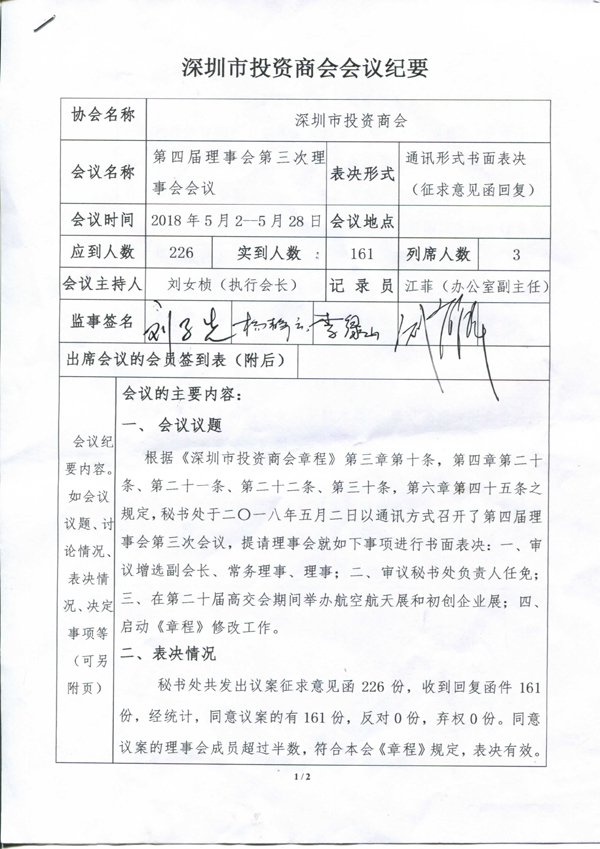 深圳市投资商会会议纪要
协会名称 深圳市投资商会
会议名称 第四届理事会第三次理事会会议 表决形式 通讯形式书面表决（征求意见函回复）
会议时间 2018年5月2—5月28日 会议地点
应到人数 226 实到人数： 161 列席人数 3
会议主持人 刘女桢（执行会长） 记录员 江菲（办公室副主任）
监事签名
出席会议的会员签到表（附后）
会议纪
要内容。
如会议
议题、讨
论情况、
表决情
况、决定
事项等
（可另
附页）
会议的主要内容：
一、会议议题
根据《深圳市投资商会章程》第三章第十条，第四章第二十
条、第二十一条、第二十二条、第三十条，第六章第四十五条之
规定，秘书处于二〇一八年五月二日以通讯方式召开了第四届理
事会第三次会议，提请理事会就如下事项进行书面表决：一、审
议增选副会长、常务理事、理事；二、审议秘书处负责人任免；
三、在第二十届高交会期间举办航空航天展和初创企业展；四、
启动《章程》修改工作。
二、表决情况
秘书处共发出议案征求意见函226份，收到回复函件161
份，经统计，同意议案的有161份，反对0份，弃权0份。同意
议案的理事会成员超过半数，符合本会《章程》规定，表决有效。
1/2